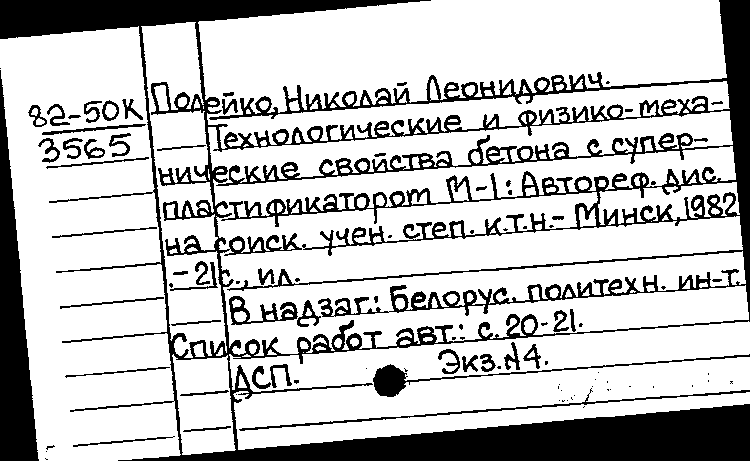 82-50К
3565
Полейко, Николай Леонидович.
Технологические и физико-меха-
нические свойства бетона с супер-
пластификаторот М-1: Автореф. дис.
на соиск. учен. степ. к.т.н.- Минск, 1982
.- 21с., ил.
В надзаг.: Белорус. политехн. ин-т.
Список работ авт.: с. 20-21.
ДСП. Экз.№4.